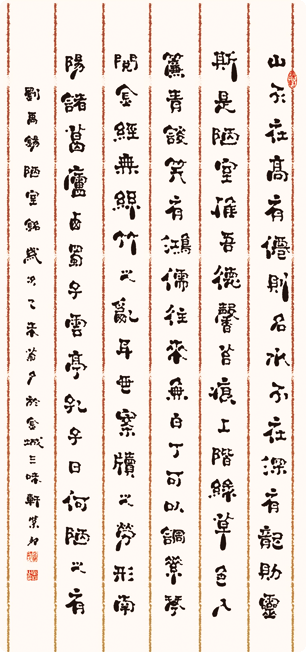 山不在高有僊則名水不在深有龍則靈
斯是陋室惟吾德馨苔痕上階綠草色入
簾青談笑有鴻儒往來無白丁可以調素琴
閱金經無絲竹之亂耳無案牘之勞形南
陽諸葛廬西蜀子雲亭孔子曰何陋之有
劉禹錫陋室銘歲次乙未於金城三味軒